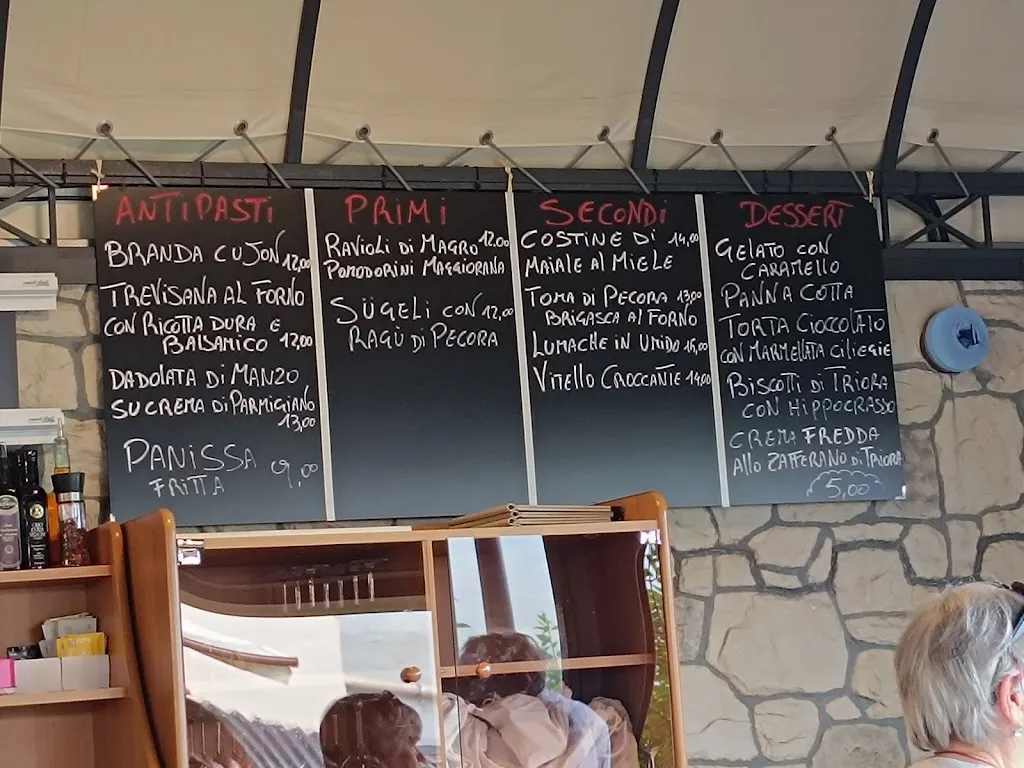 ANTIPASTI
BRANDA CUJON 12,00
TREVISANA AL FORNO
CON RICOTTA DURA E
BALSAMICO 12,00
DADOLATA DI MANZO
SU CREMA DI PARMIGIANO
13,00
PANISSA 9,00
FRITTA
PRIMI
RAVIOLI DI MAGRO 12.00
POMODORINI MAGGIORANA
SÜGELI CON 12,00
RAGÙ DI PECORA
SECONDI
COSTINE DI 14,00
MAIALE AL MIELE
TOMA DI PECORA 13,00
BRIGASCA AL FORNO
LUMACHE IN UMIDO 16,00
VITELLO CROCCANTE 14,00
DESSERT
GELATO CON
CARAMELLO
PANNA COTTA
TORTA CIOCCOLATO
CON MARMELLATA CILIEGIE
BISCOTTI DI TRIORA
CON HIPPOCRASSO
CREMA FREDDA
ALLO ZAFFERANO DI TRIORA
5,00